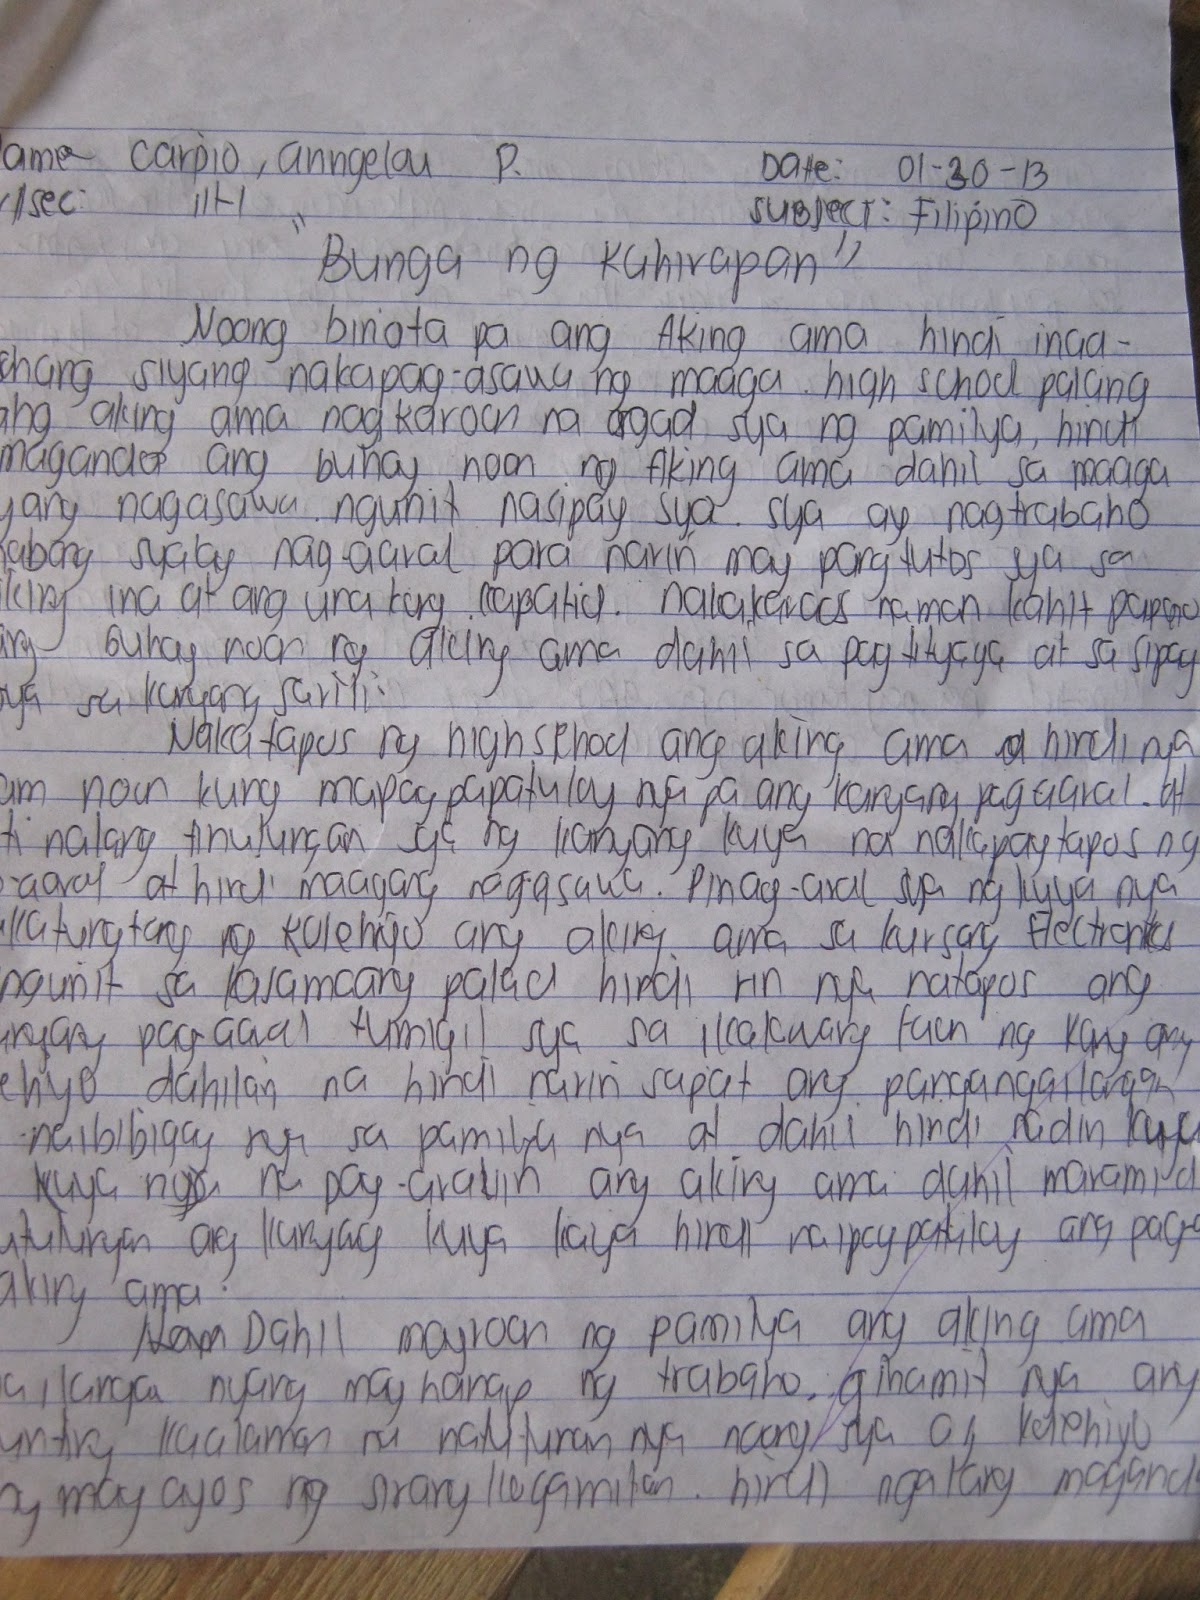 ame Carpio, Anngelou P. Date: 01-30-13
r/sec: III-1 Subject: Filipino
"Bunga ng Kahirapan"
Noong binata pa ang Aking ama hindi inaa-
shang siyang nakapag-asawa ng maaga. high school palang
ang aking ama nagkaroon na agad sya ng pamilya, hindi
maganda ang buhay noon ng Aking ama dahil sa maaga
yang nagasawa. ngunit nasipay sya. sya ay nagtrabaho
habang syalay nag-aaral para narin may pangtutos sya sa
iking ina at ang una kong kapatid. nakakaraos naman kahit papano
ang buhay noon ng aking ama dahil sa pagtityaga at sa sipag
nya sa kanyang sarili.
Nakatapos ng highschool ang aking ama at hindi nya
am noon kung mapagpapatuloy nya pa ang kanyang pagaaral. at
ti nalang tinulungan sya ng kanyang kuya na nakapagtapos ng
-aaral at hindi maagang nagasawa. Pinag-aral sya ng kuya nya
ng kolehiyo ang aking ama sa kursong Electronics
ngunit sa kasamaang palad hindi rin nya natapos ang
anyang pag-aaral tumigil sya sa ikalawang taon ng kanyang
ehiyo dahilan na hindi narin sapat ang pangangailangan
naibibigay nya sa pamilya nya at dahil hindi nadin kaya
kuya nya na pag-aralin ang aking ama dahil marami d
utulungan ang kanyang kuya kaya hindi naipagpatuloy ang pag-a
aking ama.
Dahil mayroon ng pamilya ang aking ama
a ilangan nyang may hanap ng trabaho. ginamit nya ang
unting kaalaman na natutunan nya noong sya ay kolehiyo
ng may ayos ng sirang kagamitan. hindi ngalang magand